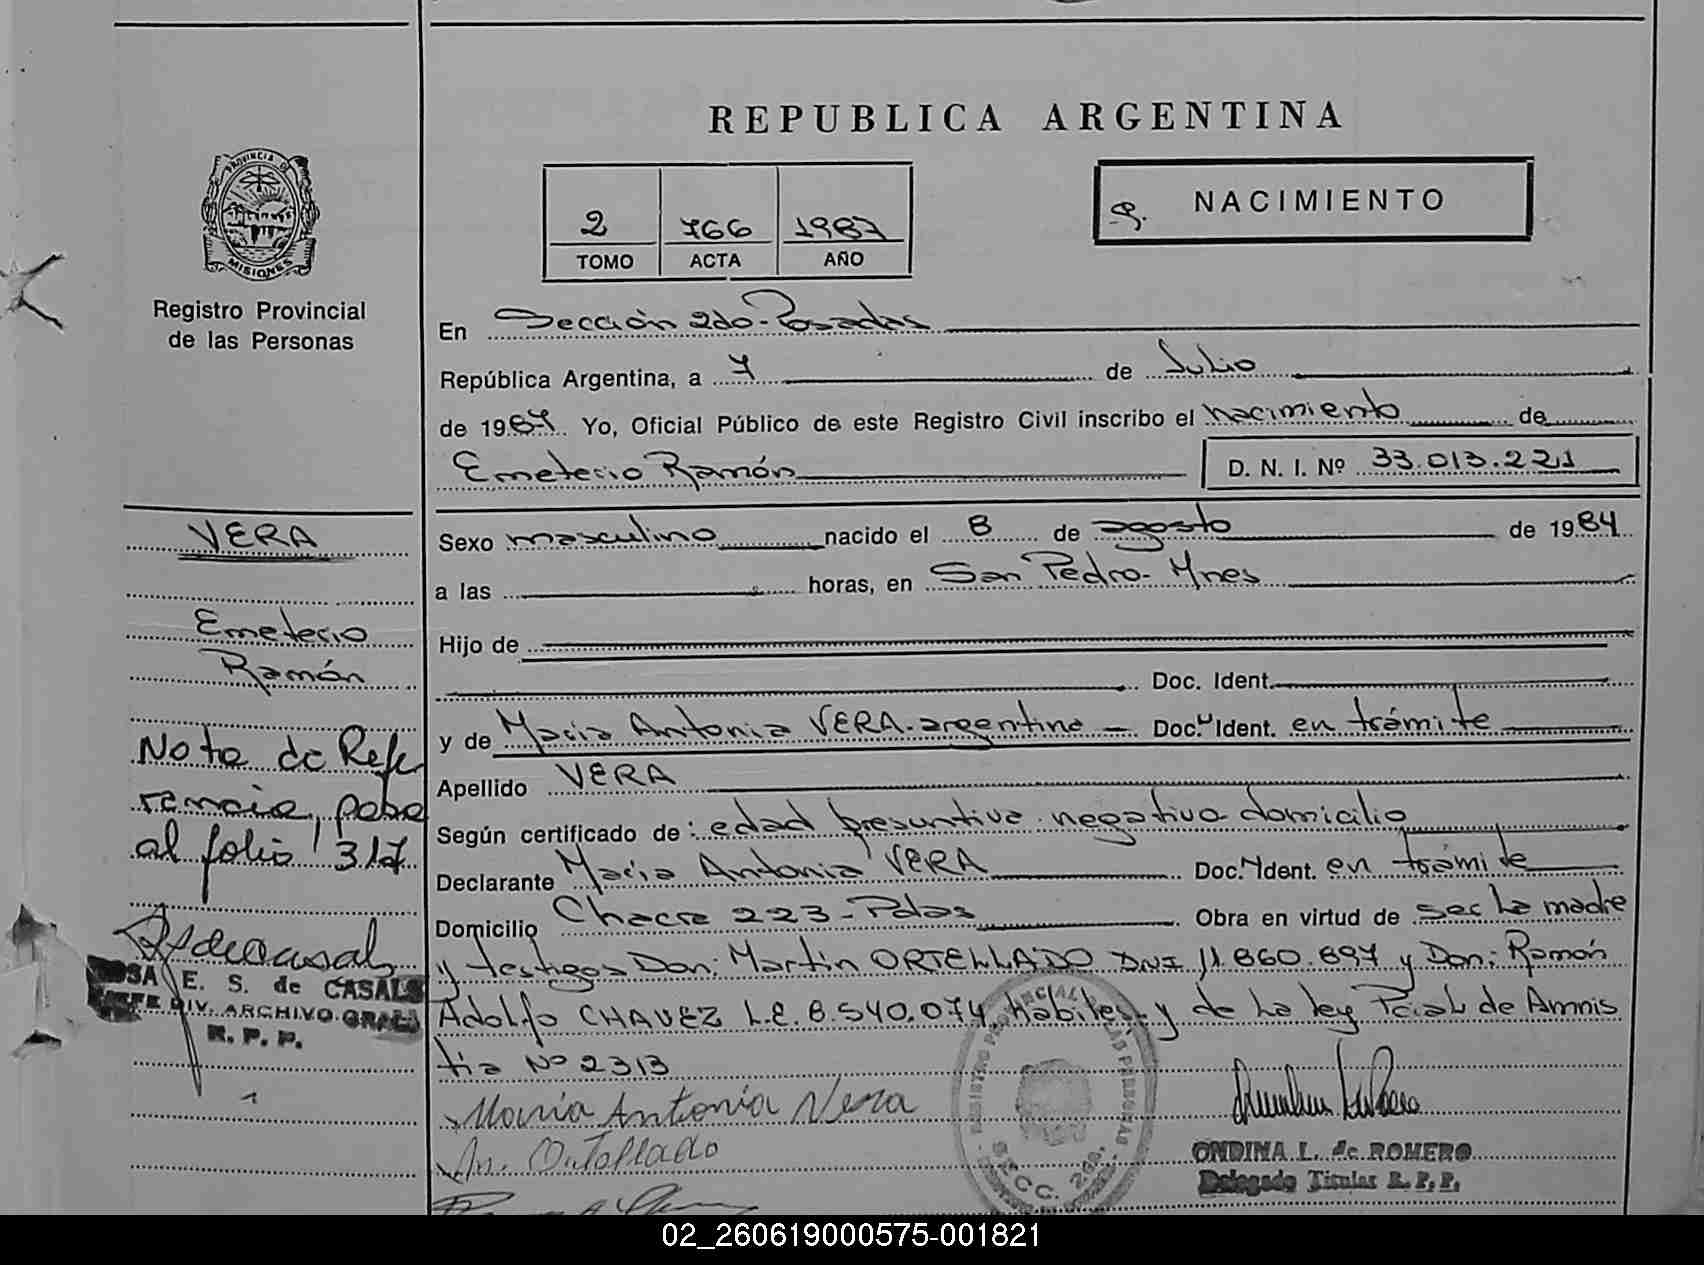 REPUBLICA ARGENTINA
PROVINCIA DE
MISIONES
Registro Provincial
de las Personas
2 766 1987
TOMO ACTA AÑO
NACIMIENTO
En Sección 2do-Posadas
República Argentina, a 7 de Julio
de 1987. Yo, Oficial Público de este Registro Civil inscribo el nacimiento de
Emeterio Ramón D. N. I. Nº 33.013.221
Sexo masculino nacido el 8 de agosto de 1984
a las horas, en San Pedro-Mnes
Hijo de
Doc. Ident.
y de María Antonia VERA-argentina - Doc. Ident. en trámite
Apellido VERA
Según certificado de: edad presuntiva negativa domicilio
Declarante María Antonia VERA Doc. Ident. en trámite
Domicilio Chacra 223-Pdas Obra en virtud de ser la madre
y testigos Don: Martín ORTELLADO DNI 11.860.897 y Don: Ramón
Adolfo CHAVEZ L.E. 8.540.074 habiles y de la ley Pcial de Amnis
tia Nº 2313
María Antonia Vera
Ortellado
ONDINA L. de ROMERO
Delegado Titular R.P.P.
SECC. 2da.
VERA
Emeterio
Ramón
Nota de Refe
rencia, pasa
al folio 317
ROSA E. S. de CASALS
JEFE DIV. ARCHIVO GRAL
R. P. P.
02_260619000575-001821